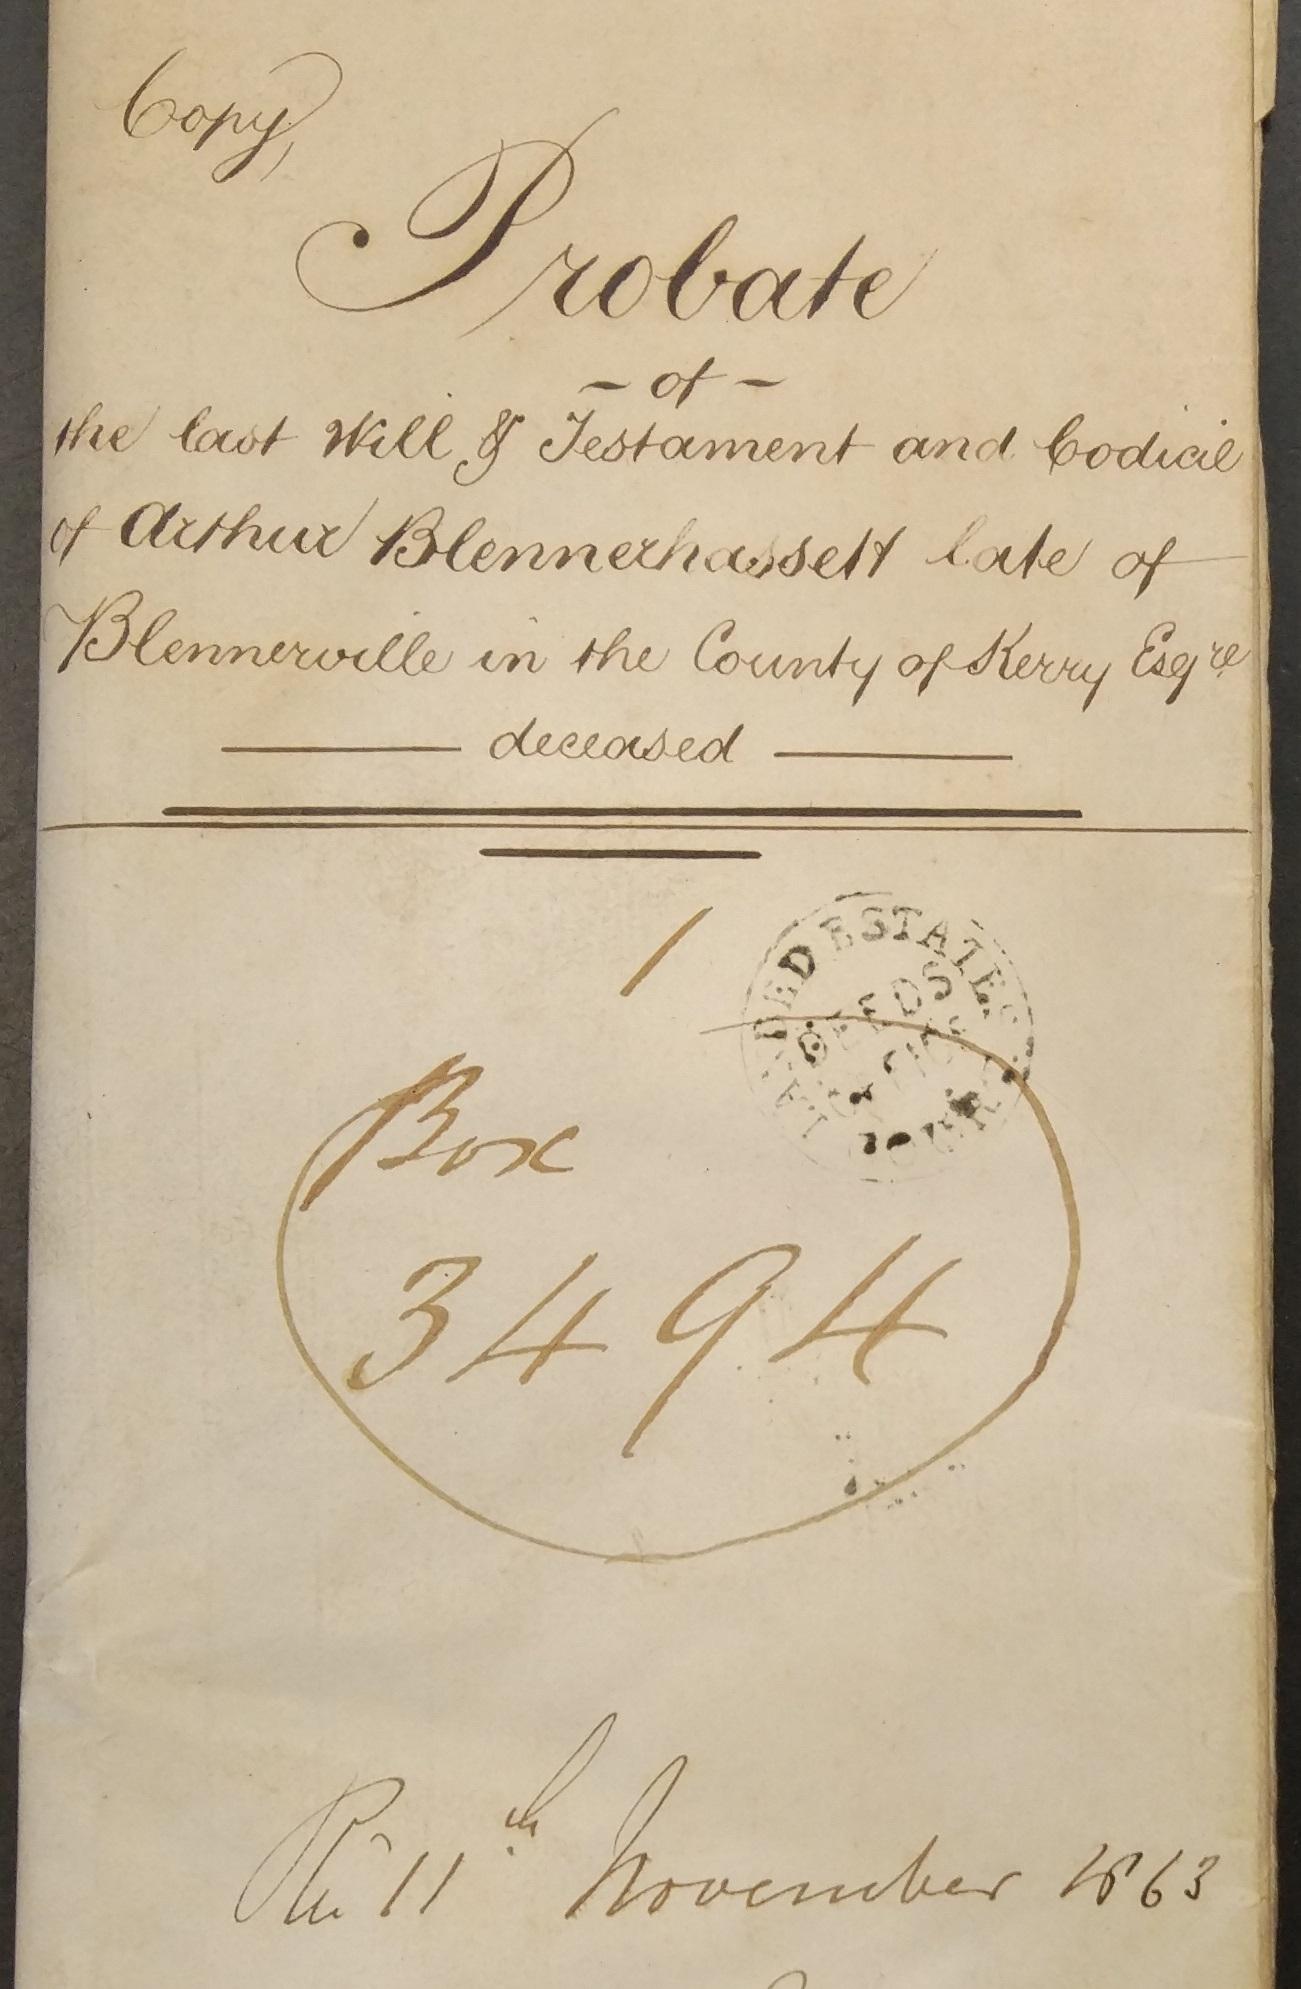 Copy,
Probate
- of -
the last Will & Testament and Codicil
of Arthur Blennerhassett late of
Blennerville in the County of Kerry Esqre
deceased
1
LANDED ESTATES COURT
DEEDS OFFICE
Box
3494
11th November 1863